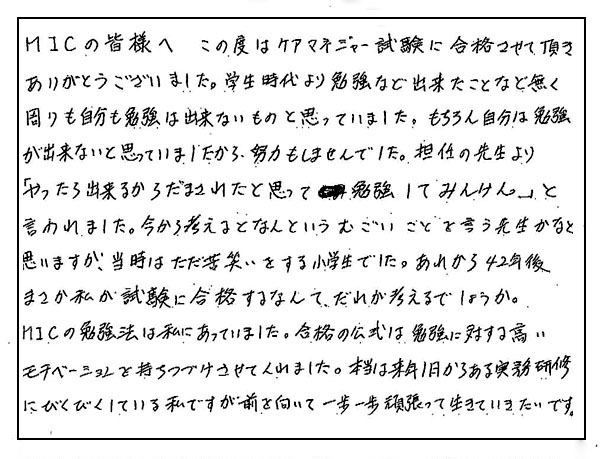 MICの皆様へ この度はケアマネジャー試験に合格させて頂き
ありがとうございました。学生時代より勉強など出来たことなど無く
周りも自分も勉強は出来ないものと思っていました。もちろん自分は勉強
が出来ないと思っていましたから、努力もしませんでした。担任の先生より
「やったら出来るからだまされたと思って勉強してみんけん。」と
言われました。今から考えるとなんというむごいことを言う先生かなと
思いますが、当時はただ苦笑いをする小学生でした。あれから42年後
まさか私が試験に合格するなんて、だれが考えるでしょうか。
MICの勉強法は私にあっていました。合格の公式は勉強に対する高い
モチベーションを持ちつづけさせてくれました。本当は来年1月からある実務研修
にびくびくしている私ですが前を向いて一歩一歩頑張って生きていきたいです。